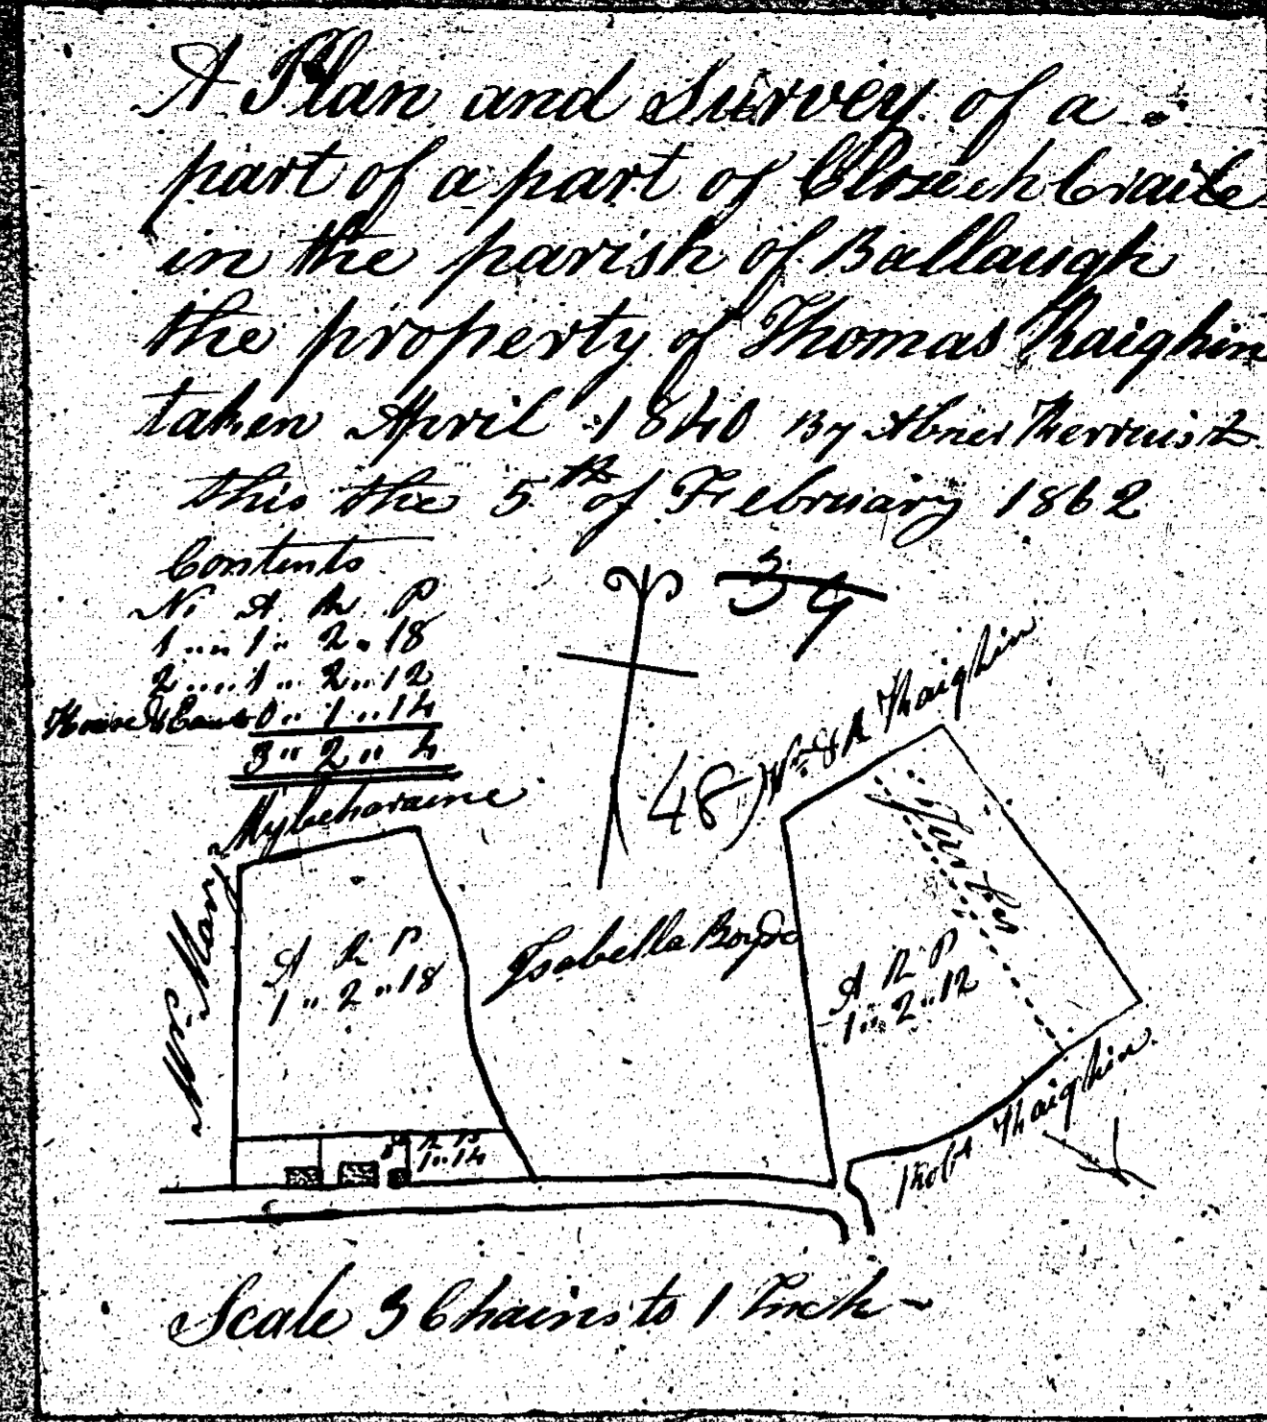 A Plan and Survey of a
part of a part of
in the parish of Ballaugh
the property of Thomas Kaighin
taken April 1840 By Abner
this the 5th of February 1862
Contents
No A R P
1 .... 1 " 2 " 18
2 .... 1 " 2 " 12
House &c 0 " 1 " 14
3 " 2 " 4
39
48) Wm & R Kaighin
Mylecharaine
Mr. Mary
A R P
1 " 2 " 18
Isabella Boyd
A R P
1 " 2 " 12
R P
1 " 14
Robt Kaighin
Scale 3 Chains to 1 Inch